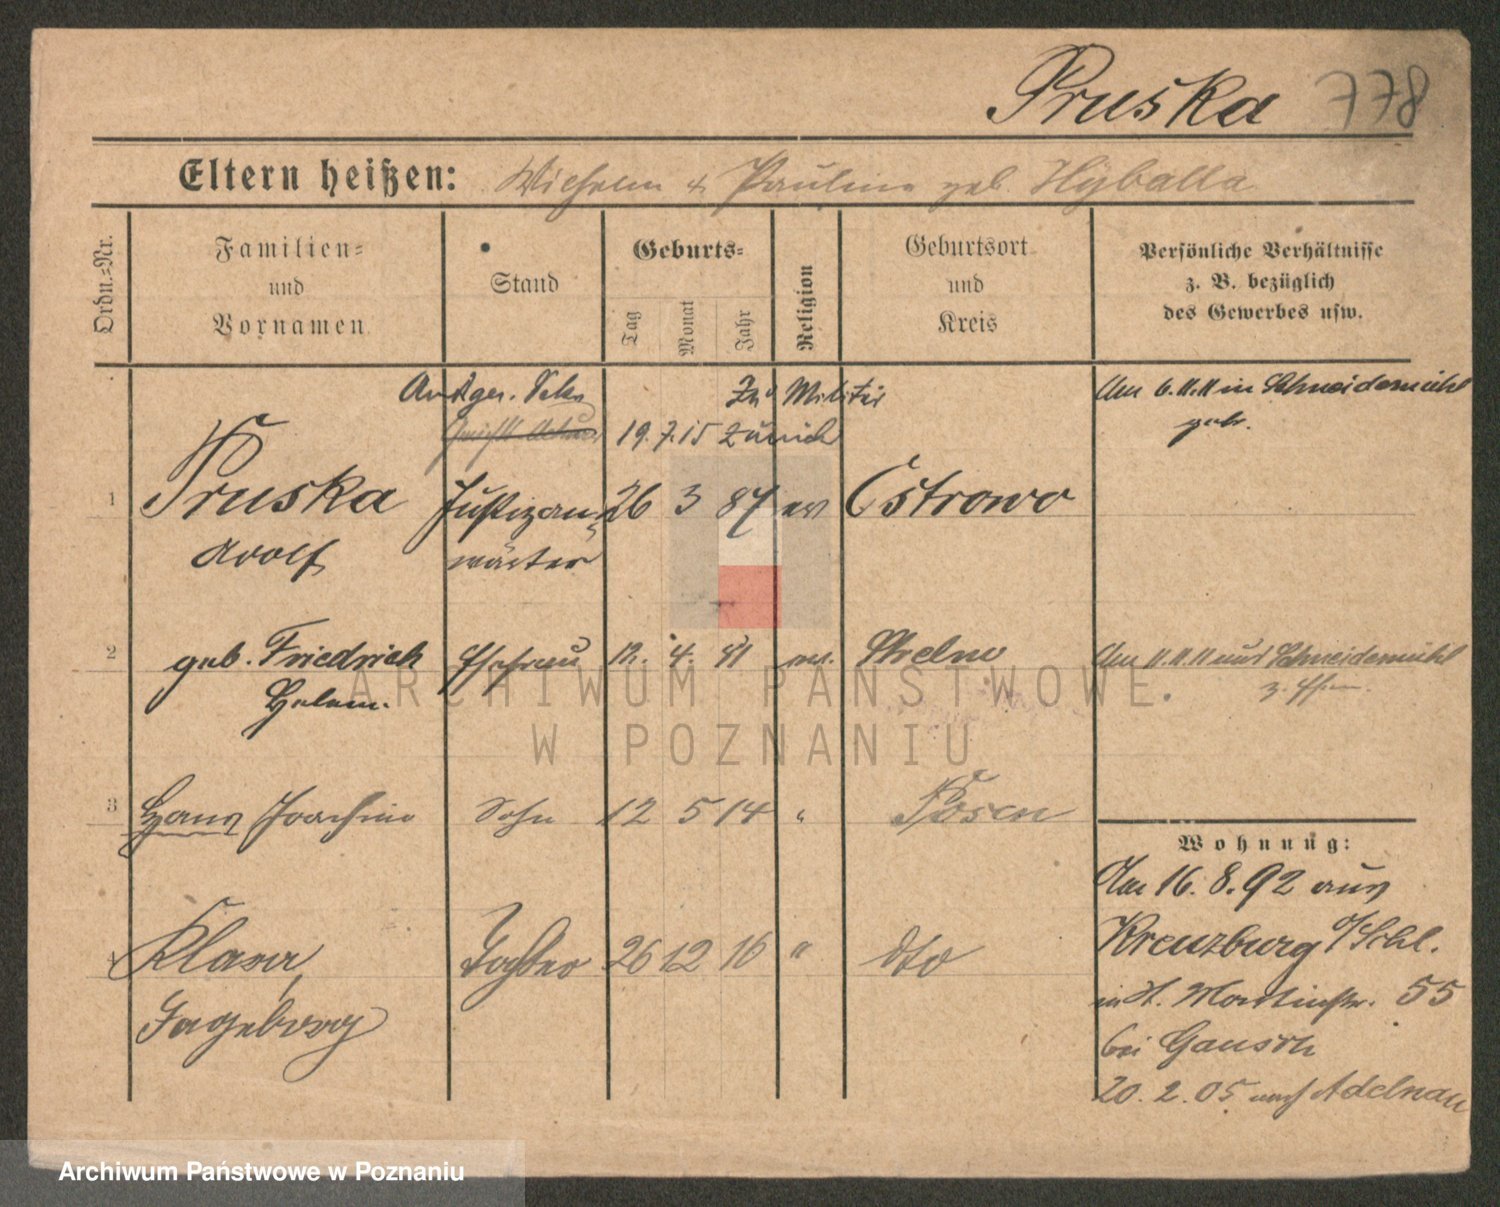 Pruska 778
Eltern heißen: Wilhelm & Pauline geb. Hyballa
Ordn.-Nr.
Familien-
und
Vornamen
Stand
Geburts-
Tag
Monat
Jahr
Religion
Geburtsort
und
Kreis
Persönliche Verhältnisse
z. B. bezüglich
des Gewerbes usw.
Zum Militär
19.7.15 Züllich
1 Pruska
Adolf
Justizan-
wärter
26 3 87 ev Ostrowo
Am 6.11.11 in Schneidemühl
2 geb. Friedrich
Helene
Ehefrau 12. 4. 91 ev. Strelno
Am 11.11.11 aus Schneidemühl
z. Ehem.
3 Hans Joachim Sohn 12 5 14 " Posen
4 Klara,
Ingeborg
Tochter 26 12 16 " dto
Wohnung:
Am 16.8.92 aus
Kreuzburg O/Schl.
in St. Martinstr. 55
bei Gausch
20.2.05 nach Adelnau
ARCHIWUM PAŃSTWOWE
W POZNANIU
Archiwum Państwowe w Poznaniu